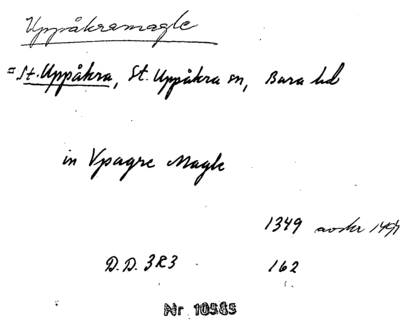 Uppåkramagle
= St. Uppåkra, St. Uppåkra sn, Bara hd
in Vpagre Magle
1349 avskr 1494
D.D. 3R3 162
Nr 10585